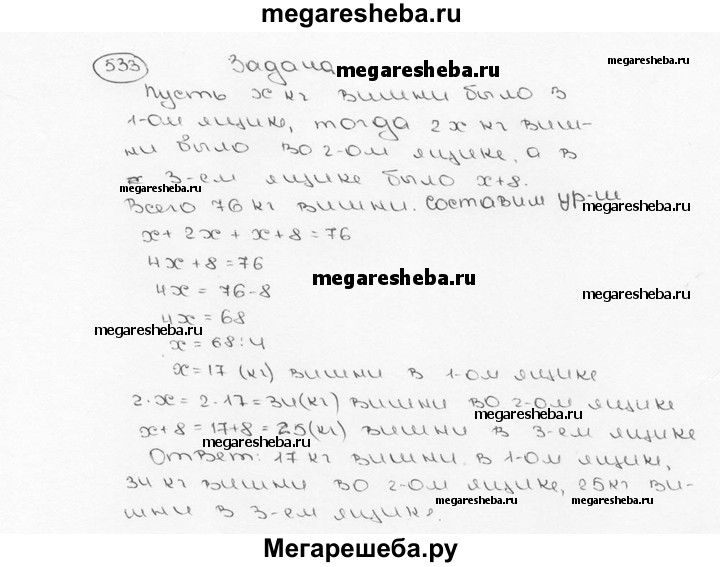 megaresheba.ru
533 Задача megaresheba.ru
Пусть x кг вишни было в
1-ом ящике, тогда 2x кг виш-
ни было во 2-ом ящике, а в
3-ем ящике было x+8.
megaresheba.ru
Всего 76 кг вишни. составим ур-ш
megaresheba.ru
x + 2x + x + 8 = 76
4x + 8 = 76
megaresheba.ru
4x = 76-8
megaresheba.ru
4x = 68
megaresheba.ru
x = 68:4
x = 17 (кг) вишни в 1-ом ящике
2·x = 2·17 = 34(кг) вишни во 2-ом ящике
megaresheba.ru
x+8 = 17+8 = 25(кг) вишни в 3-ем ящике
megaresheba.ru
Ответ: 17 кг вишни в 1-ом ящике,
34 кг вишни во 2-ом ящике, 25кг ви-
megaresheba.ru
megaresheba.ru
шни в 3-ем ящике.
Мегарешеба.ру